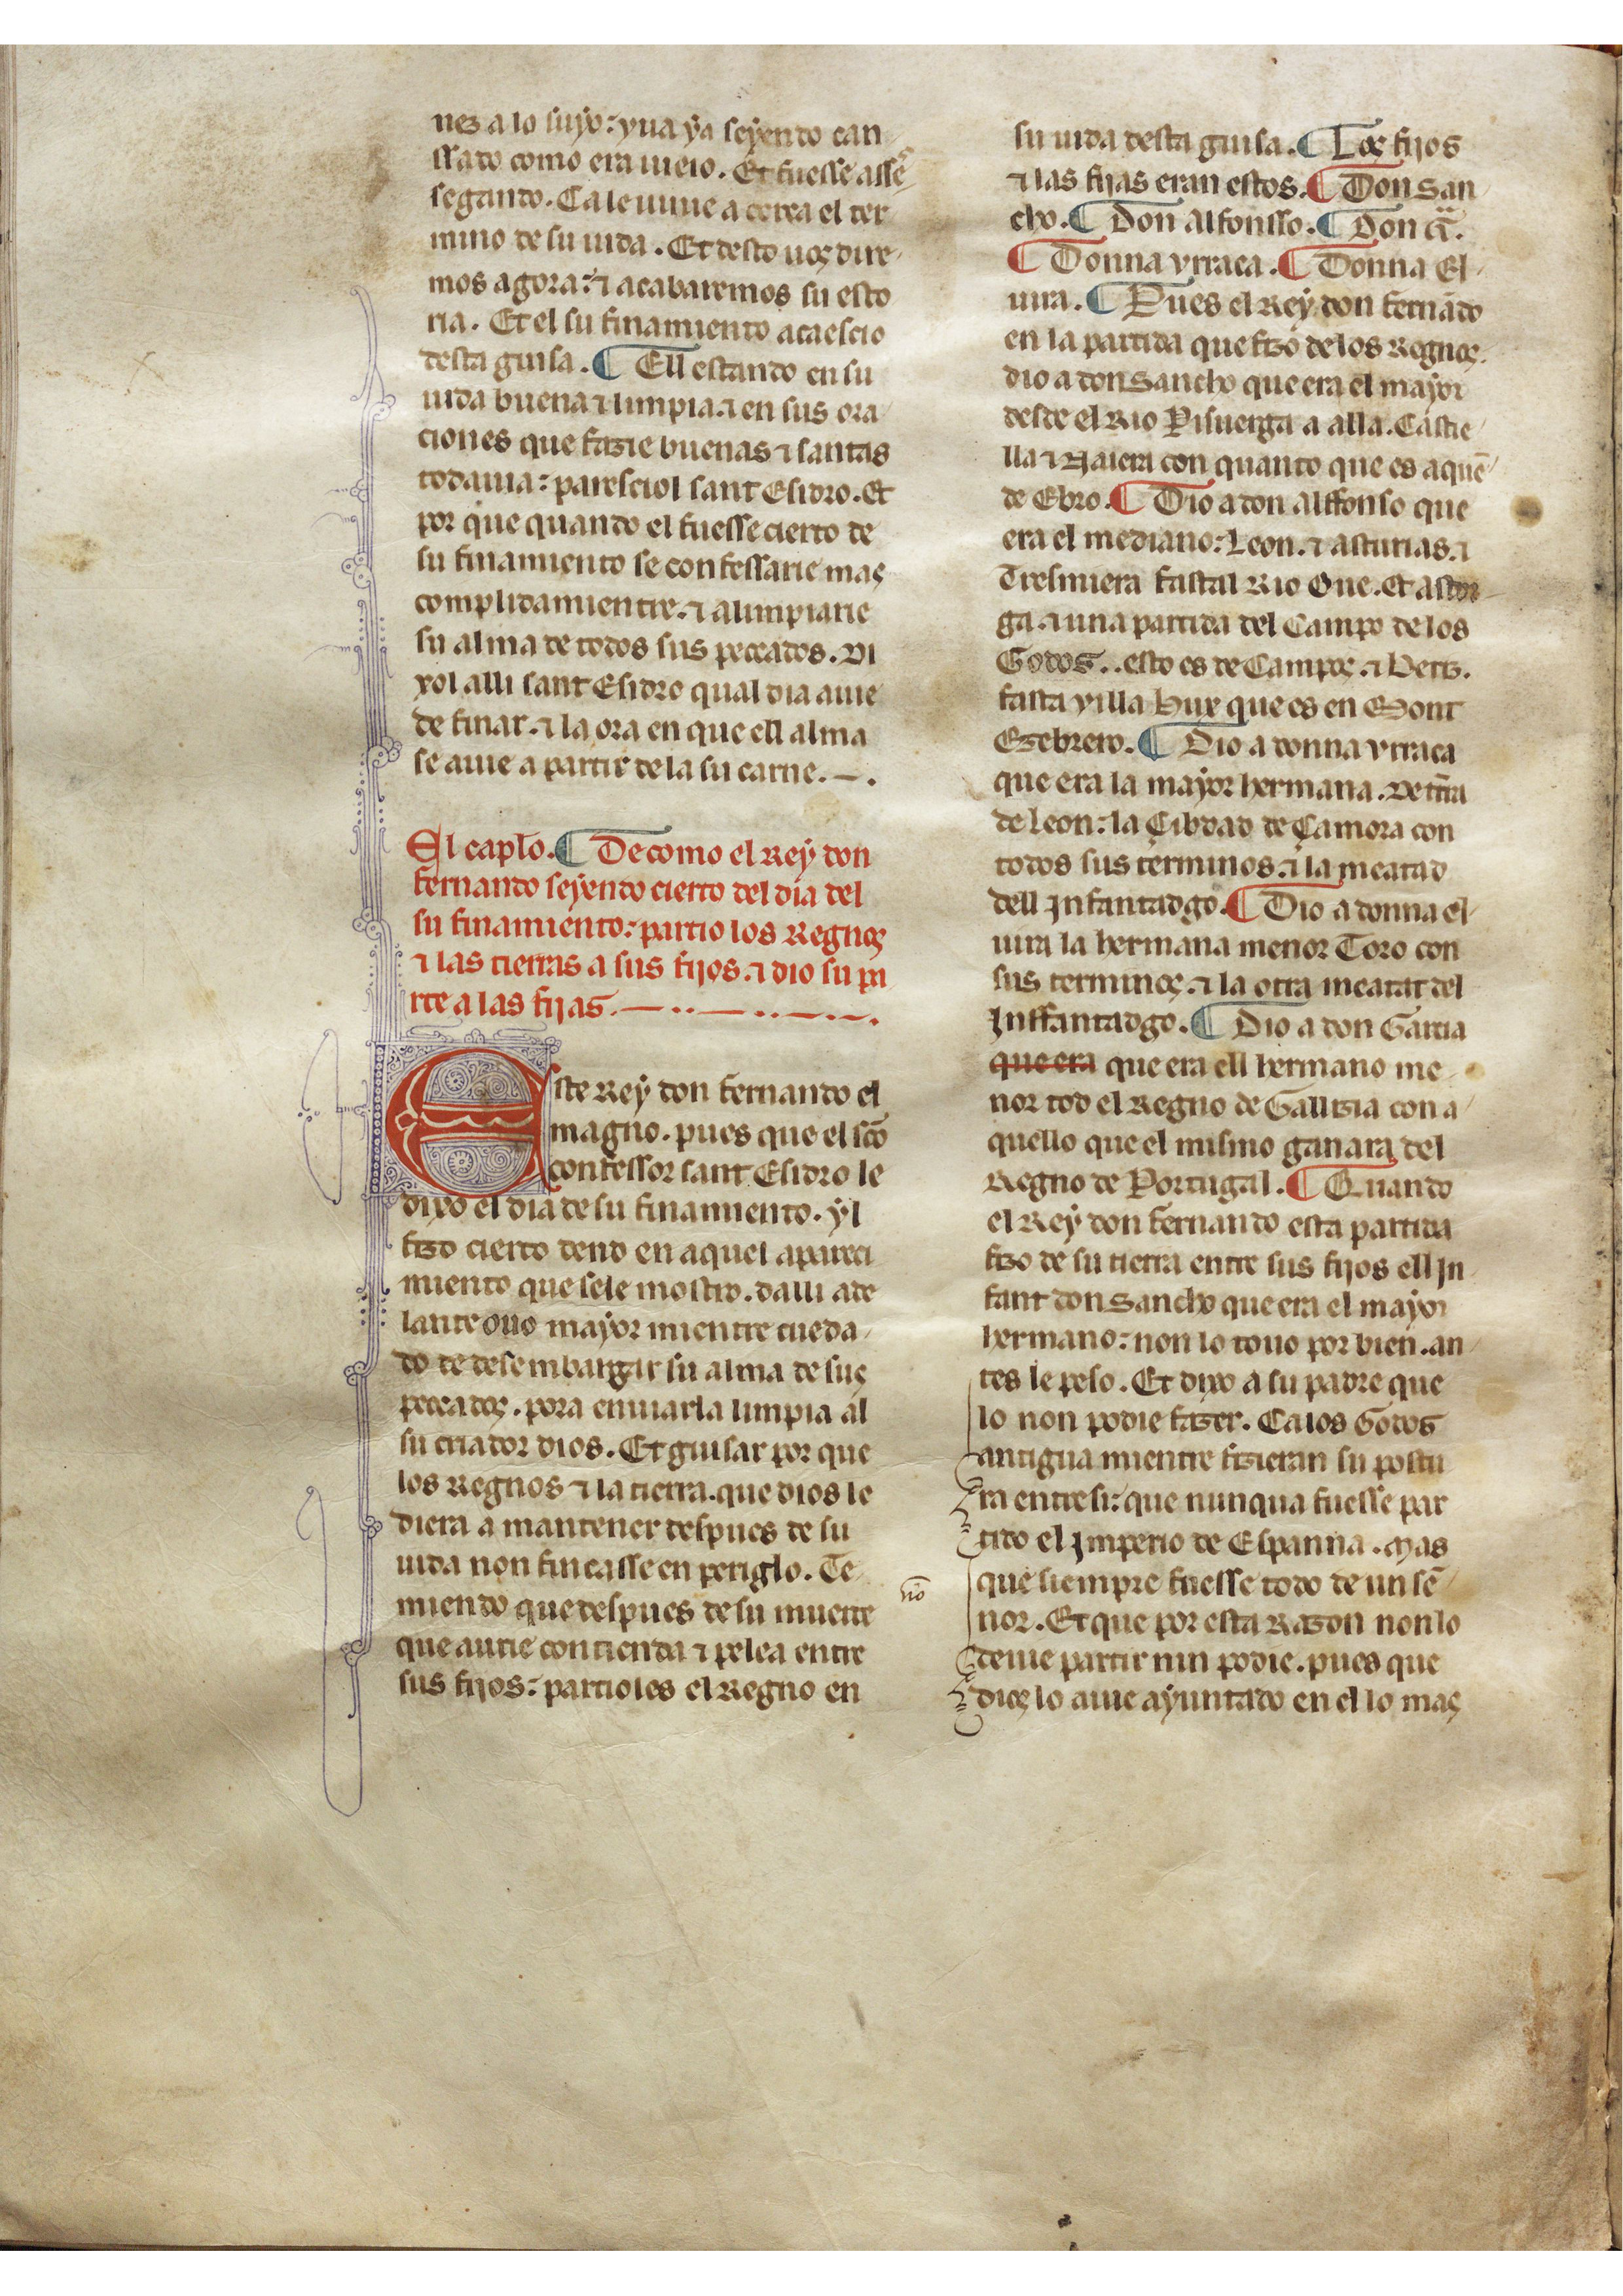 nes a lo suyo: yua ya seyendo can
ssado como era uieio. Et fuesse asse
segando. Ca le uiniie a cerca el ter
mino de su uida. Et desto uos dire
mos agora: ⁊ acabaremos su esto
ria. Et el su finamiento acaescio
desta guisa. ¶ Ell estando en su
uida buena ⁊ limpia. ⁊ en sus ora
ciones que fazie buenas ⁊ santas
todauia: paresciol sant Esidro. Et
por que quando el fuesse cierto de
su finamiento se confessarie mas
complidamientre. ⁊ alimpiarie
su alma de todos sus peccados. Di
xol alli sant Esidro qual dia auie
de finar. ⁊ la ora en que ell alma
se auie a partir de la su carne.
El caplo. ¶ De como el Rey don
fernando seyendo cierto del dia del
su finamiento: partio los Regnos
⁊ las tierras a sus fijos. ⁊ dio su pa
rte a las fijas.
Este Rey don fernando el
magno. pues que el sco
confessor sant Esidro le
dixo el dia de su finamiento. yl
fizo cierto dend en aquel apareci
miento que sele mostro. dalli ade
lante ouo mayor mientre cueda
do de desembargar su alma de sus
peccados. pora enuiarla limpia al
su criador dios. Et guisar por que
los Regnos ⁊ la tierra. que dios le
diera a mantener despues de su
uida non fincasse en periglo. Te
miendo que despues de su muerte
que aurie contienda ⁊ pelea entre
sus fijos: partioles el Regno en
su uida desta guisa. ¶ Los fijos
⁊ las fijas eran estos. ¶ Don San
cho. ¶ Don Alfonsso. ¶ Don Ga.
¶ Donna yrraca. ¶ Donna El
uira. ¶ Pues el Rey don fernādo
en la partida que fizo de los Regnos.
dio a don Sancho que era el mayor
desde el Rio Pisuerga a alla. Castie
lla ⁊ Naiera con quanto que es aquē
de Ebro. ¶ Dio a don Alffonso que
era el mediano: Leon. ⁊ asturias. ⁊
Tresmiera fastal Rio Oue. Et astor
ga. ⁊ una partida del Campo de los
Godos.. esto es de Campos. ⁊ Beriz.
fasta villa Hux que es en Mont
Ezebrero. ¶ Dio a donna yrraca
que era la mayor hermana. De tr̄ra
de Leon: la Çibdad de Çamora con
todos sus terminos. ⁊ la meatad
dell Infantadgo. ¶ Dio a donna el
uira la hermana menor Toro con
sus terminos. ⁊ la otra meatat del
Inffantadgo. ¶ Dio a don Garcia
que era que era ell hermano me
nor tod el Regno de Gallizia con a
quello que el mismo ganara del
Regno de Portugal. ¶ Quando
el Rey don fernando esta partida
fizo de su tierra entre sus fijos ell In
fant don Sancho que era el mayor
hermano: non lo touo por bien. an
tes le peso. Et dixo a su padre que
lo non podie fazer. Ca los Godos
antigua mientre fizieran su postu
ra entresi: que nunqua fuesse par
tido el Imperio de Espanna. Mas
que siempre fuesse todo de un sē
nor. Et que por esta Razon non lo
deuie partir nin podie. pues que
dios lo auie ayuntado en el lo mas
nō